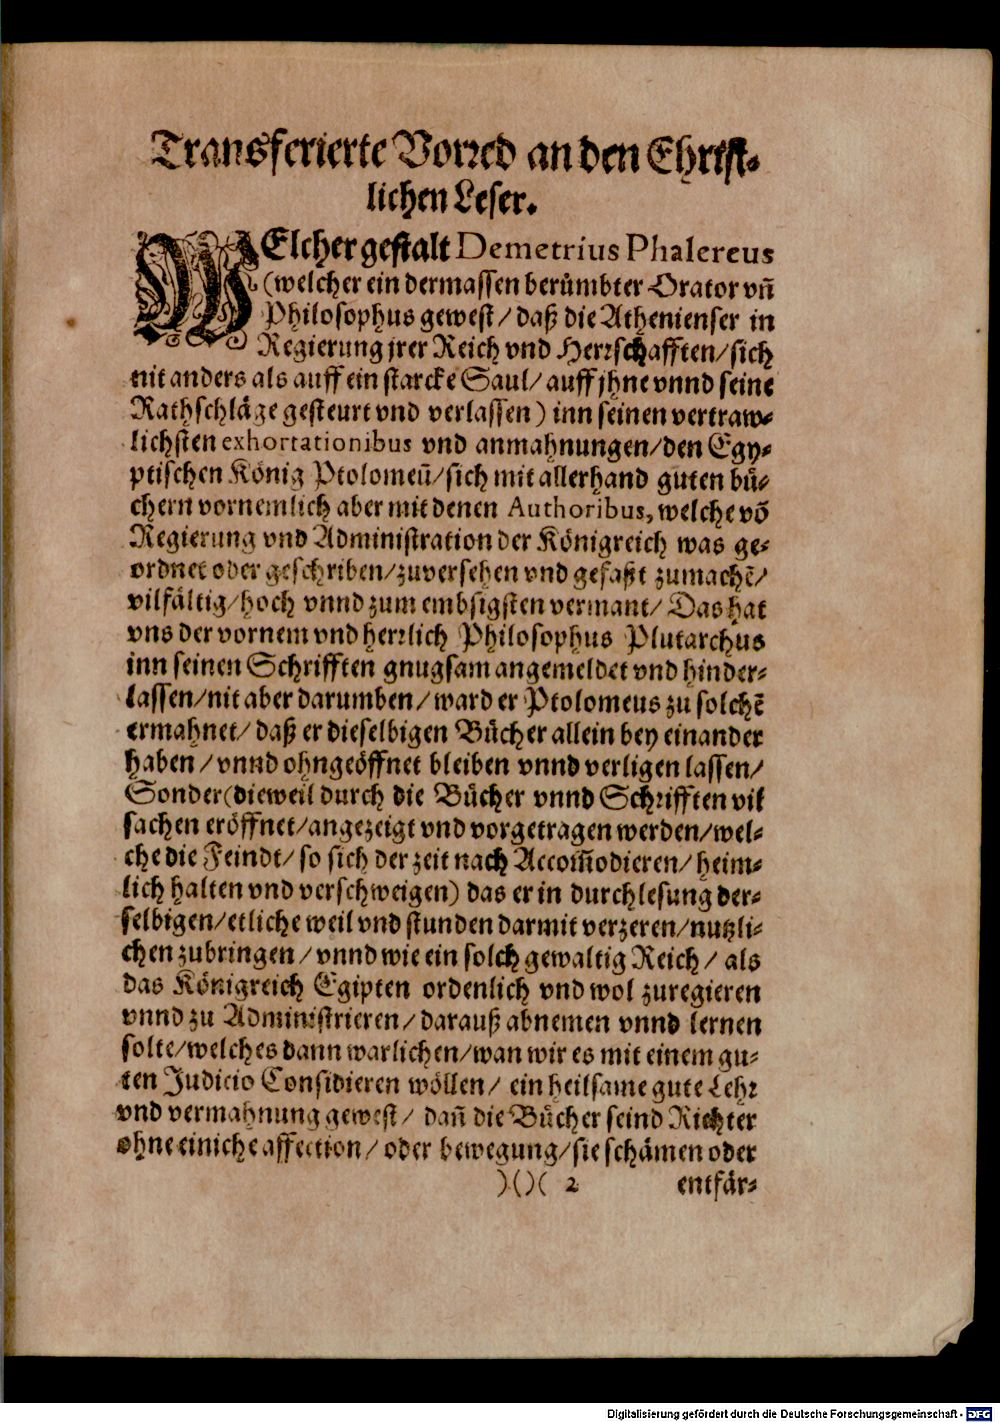 Transferierte Vorred an den Christ-
lichen Leser.
WElcher gestalt Demetrius Phalereus
(welcher ein dermassen berümbter Orator vñ
Philosophus gewest/ daß die Athenienser in
Regierung jrer Reich vnd Herrschafften/ sich
nit anders als auff ein starcke Saul/ auff jhne vnnd seine
Rathschläge gesteurt vnd verlassen) inn seinen vertraw-
lichsten exhortationibus vnd anmahnungen/ den Egy-
ptischen König Ptolomeũ/ sich mit allerhand guten bü-
chern vornemlich aber mit denen Authoribus, welche võ
Regierung vnd Administration der Königreich was ge-
ordnet oder geschriben/ zuversehen vnd gefaßt zumachẽ/
vilfältig/ hoch vnnd zum embsigsten vermant/ Das hat
vns der vornem vnd herrlich Philosophus Plutarchus
inn seinen Schrifften gnugsam angemeldet vnd hinder-
lassen/ nit aber darumben/ ward er Ptolomeus zu solchẽ
ermahnet/ daß er dieselbigen Bücher allein bey einander
haben/ vnnd ohngeöffnet bleiben vnnd verligen lassen/
Sonder (dieweil durch die Bücher vnnd Schrifften vil
sachen eröffnet/ angezeigt vnd vorgetragen werden/ wel-
che die Feindt/ so sich der zeit nach Accom̃odieren/ heim-
lich halten vnd verschweigen) das er in durchlesung der-
selbigen/ etliche weil vnd stunden darmit verzeren/ nutzli-
chen zubringen/ vnnd wie ein solch gewaltig Reich/ als
das Königreich Egipten ordenlich vnd wol zuregieren
vnnd zu Administrieren/ darauß abnemen vnnd lernen
solte/ welches dann warlichen/ wan wir es mit einem gu-
ten Judicio Considieren wöllen/ ein heilsame gute Lehr
vnd vermahnung gewest/ dañ die Bücher seind Richter
ohne einiche affection/ oder bewegung/ sie schämen oder
)()( 2 entfär-
Digitalisierung gefördert durch die Deutsche Forschungsgemeinschaft - DFG